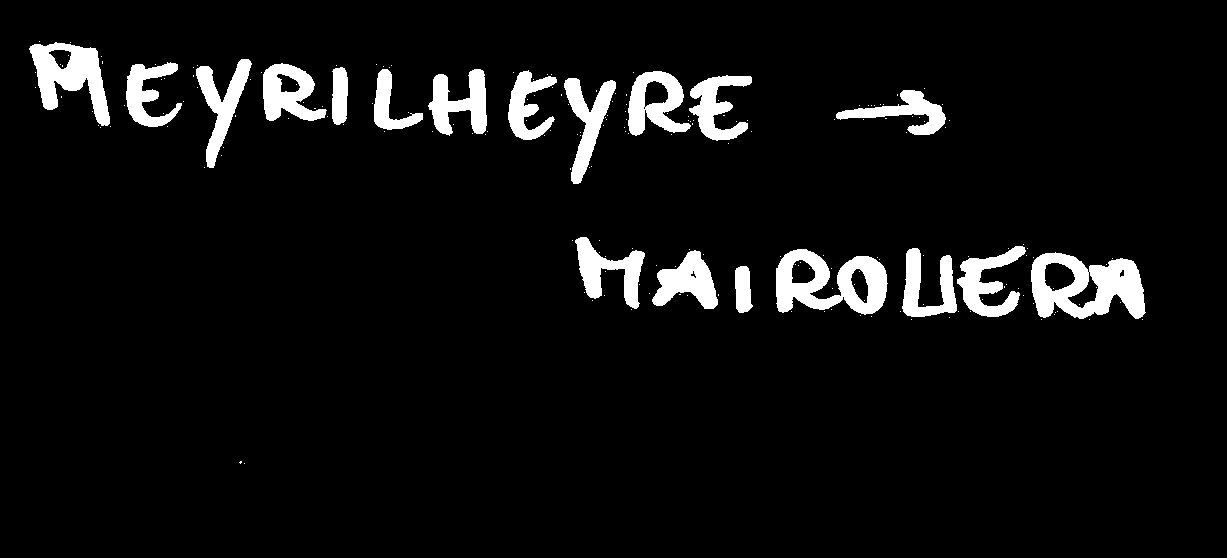 MEYRILHEYRE →
MAIROLIERA